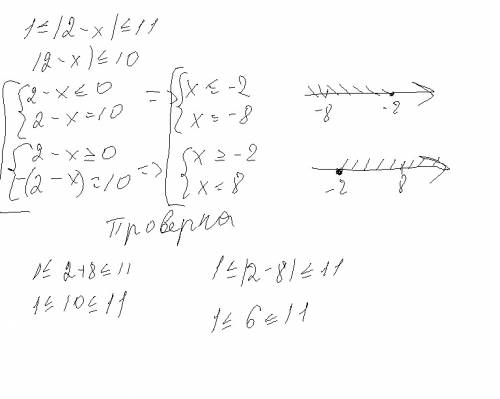 1 ≤ |2 - x| ≤ 11
|2 - x) ≤ 10
2 - x ≤ 0 => x ≤ -2
2 - x = 10 x = -8
-8 -2
2 - x ≥ 0 => x ≥ -2
-(2 - x) = 10 x = 8
-2 8
Проверка
1 ≤ 2+8 ≤ 11 1 ≤ |2 - 8| ≤ 11
1 ≤ 10 ≤ 11 1 ≤ 6 ≤ 11